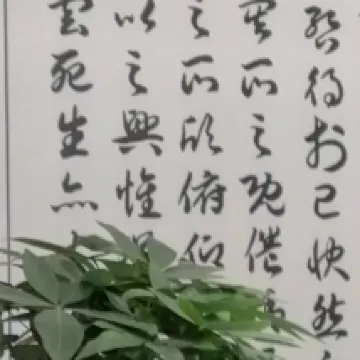 暫得於己快然
其所之既倦情
之所欣俯仰
以之興懷
雲死生亦